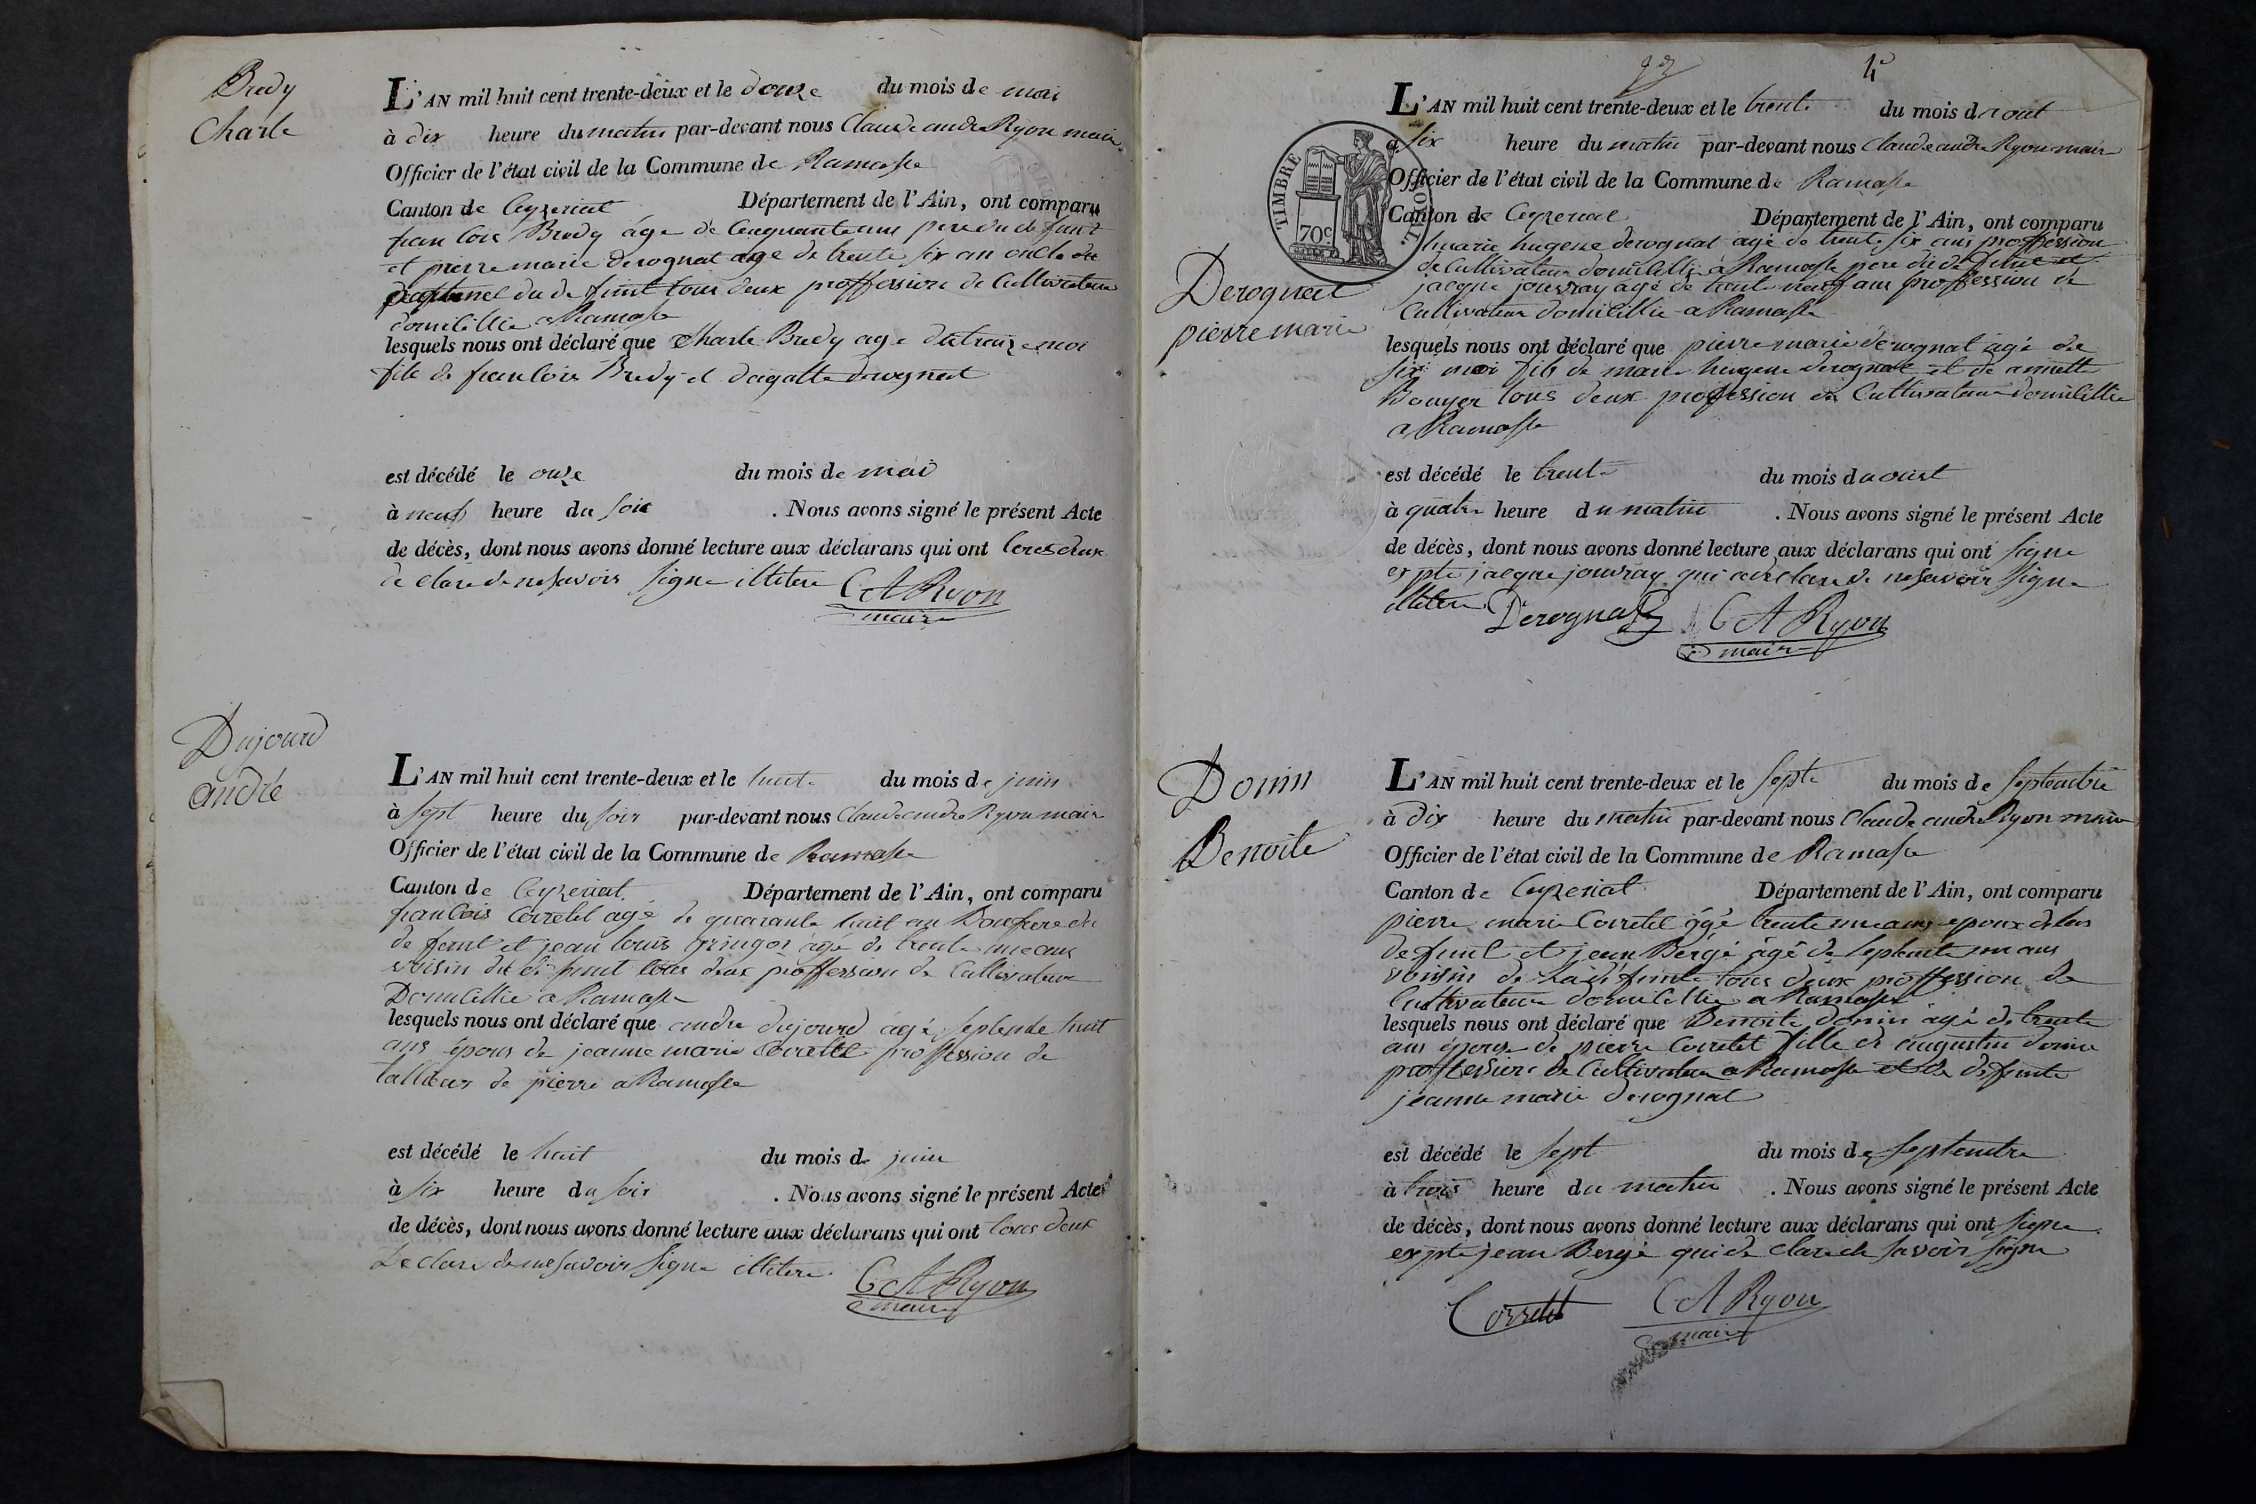 Bredy
Charle
L'AN mil huit cent trente-deux et le douze du mois de mai
à dix heure du matin par-devant nous Claude andre Ryon maire
Officier de l'état civil de la Commune de Ramasse
Canton de Ceyzeriat Département de l'Ain, ont comparu
francois Bredy âge de Cinquante ans pere du defunt
et pierre marie derognat age de trente six an oncle
du defunt tous deux proffession de Cultivateur
domicillie a Ramasse
lesquels nous ont déclaré que Charle Bredy age de treize moi
fils de francois Bredy et dagatte derognat
est décédé le onze du mois de mai
à neuf heure du soir . Nous avons signé le présent Acte
de décès, dont nous avons donné lecture aux déclarans qui ont tous deux
declare de ne savoir signe illitere C A Ryon
maire
Dujourd
andré
L'AN mil huit cent trente-deux et le huit du mois de juin
à sept heure du soir par-devant nous Claude andre Ryon maire
Officier de l'état civil de la Commune de Ramasse
Canton de Ceyzeriat Département de l'Ain, ont comparu
francois Corretel agé de quarante huit an Baufrere du
defunt et jean louis âgé de trente une ans
voisin du defunt tous deux proffession de Cultivateur
Domicillie a Ramasse
lesquels nous ont déclaré que andre dujourd âgé septente huit
ans épous de jeanne marie Corretel proffession de
tallieur de pierre a Ramasse
est décédé le huit du mois de juin
à six heure du soir . Nous avons signé le présent Acte
de décès, dont nous avons donné lecture aux déclarans qui ont tous deux
Declare de ne savoir signe illitere C A Ryon
maire
4e
L'AN mil huit cent trente-deux et le trente du mois d aout
à six heure du matin par-devant nous Claude andre Ryon maire
Officier de l'état civil de la Commune de Ramasse
Canton de Ceyzeriat Département de l'Ain, ont comparu
TIMBRE ROYAL
70c
marie hugene derognat agé de trente six ans proffession
de Cultivateur domicillie a Ramasse pere du defunt et
jacque jouvray agé de trente neuf ans proffession de
Cultivateur domicillie a Ramasse
Derognat
pierre marie
lesquels nous ont déclaré que pierre marie derognat agé de
six moi fils de marie hugene derognat et de annette
Bouyer tous deux proffession de Cultivateur domicillie
a Ramasse
est décédé le trente du mois d aoust
à quatre heure du matin . Nous avons signé le présent Acte
de décès, dont nous avons donné lecture aux déclarans qui ont signe
expte jacque jouvray qui a declare de ne savoir signe
illitere Derognat C A Ryon
maire
Donin
Benoite
L'AN mil huit cent trente-deux et le septe du mois de septembre
à dix heure du matin par-devant nous Claude andre Ryon maire
Officier de l'état civil de la Commune de Ramasse
Canton de Ceyzeriat Département de l'Ain, ont comparu
pierre marie Corretel âgé trente une ans epoux de la
defunt et jean Bergé âgé de septente un ans
voisin de la defunte tous deux proffession de
Cultivateur domicillie a Ramasse
lesquels nous ont déclaré que Benoite donin âgé de trente
ans épouse de pierre Corretel fille de augustin donin
proffession de Cultivateur a Ramasse et de defunte
jeanne marie derognat
est décédé le sept du mois de septembre
à trois heure du matin . Nous avons signé le présent Acte
de décès, dont nous avons donné lecture aux déclarans qui ont signe
expte jean Bergé qui de clare de savoir signe
Corretel C A Ryon
maire